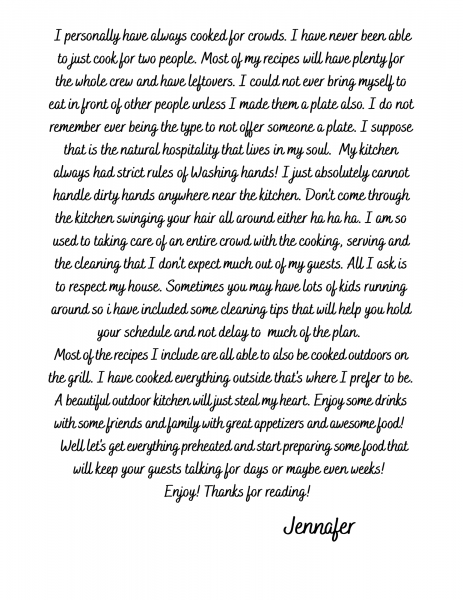 I personally have always cooked for crowds. I have never been able
to just cook for two people. Most of my recipes will have plenty for
the whole crew and have leftovers. I could not ever bring myself to
eat in front of other people unless I made them a plate also. I do not
remember ever being the type to not offer someone a plate. I suppose
that is the natural hospitality that lives in my soul. My kitchen
always had strict rules of Washing hands! I just absolutely cannot
handle dirty hands anywhere near the kitchen. Don't come through
the kitchen swinging your hair all around either ha ha ha. I am so
used to taking care of an entire crowd with the cooking, serving and
the cleaning that I don't expect much out of my guests. All I ask is
to respect my house. Sometimes you may have lots of kids running
around so i have included some cleaning tips that will help you hold
your schedule and not delay to much of the plan.
Most of the recipes I include are all able to also be cooked outdoors on
the grill. I have cooked everything outside that's where I prefer to be.
A beautiful outdoor kitchen will just steal my heart. Enjoy some drinks
with some friends and family with great appetizers and awesome food!
Well let's get everything preheated and start preparing some food that
will keep your guests talking for days or maybe even weeks!
Enjoy! Thanks for reading!
Jennafer